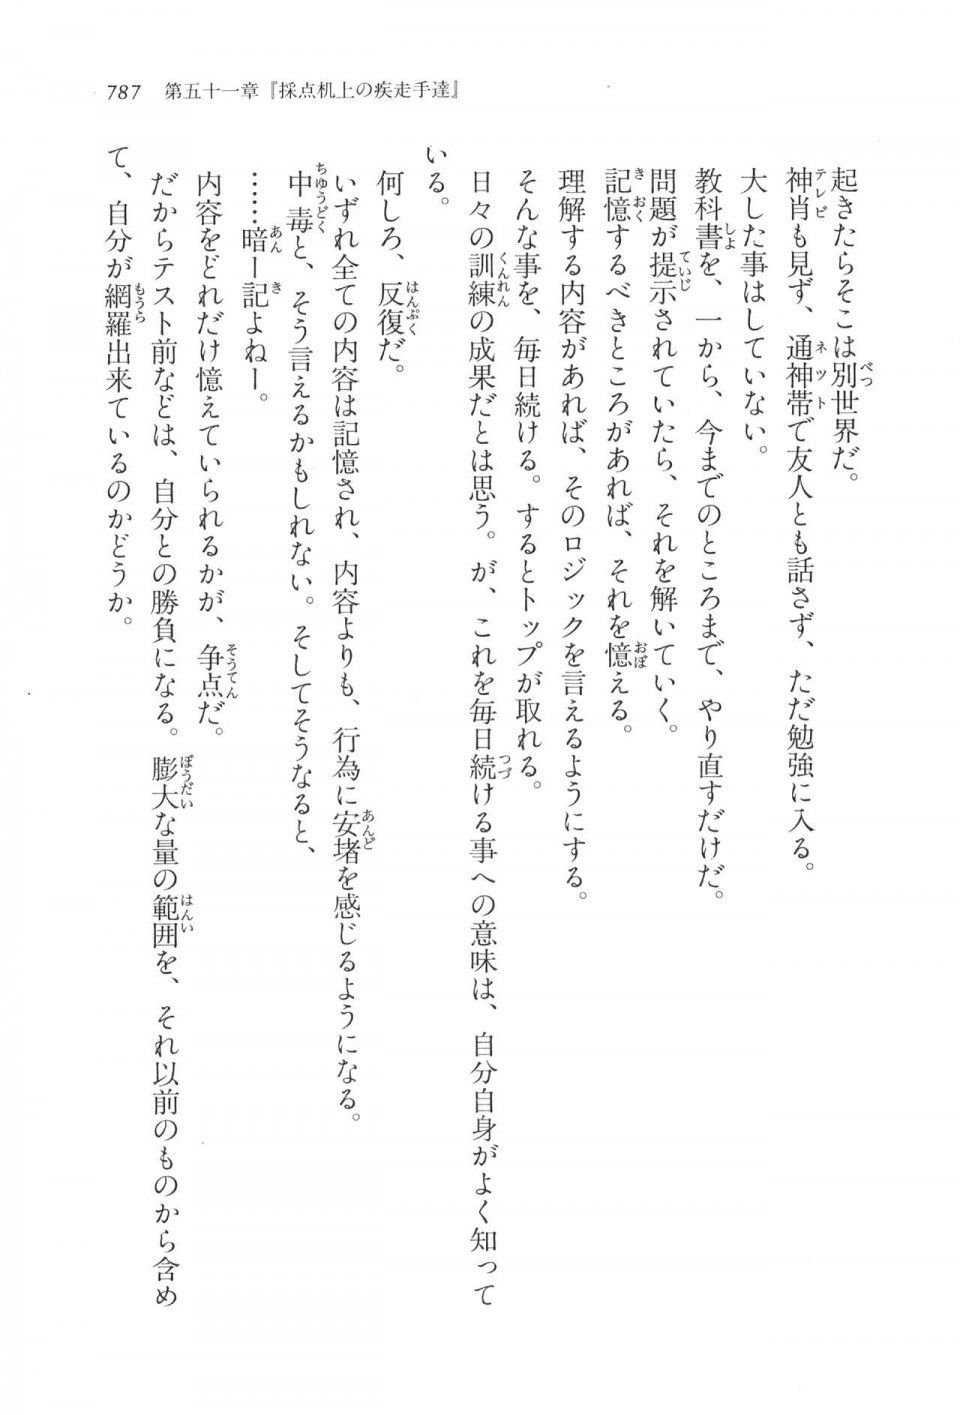 787　第五十一章『採点机上の疾走手達』
起きたらそこは別世界だ。
神肖も見ず、通神帯で友人とも話さず、ただ勉強に入る。
大した事はしていない。
教科書を、一から、今までのところまで、やり直すだけだ。
問題が提示されていたら、それを解いていく。
記憶するべきところがあれば、それを憶える。
理解する内容があれば、そのロジックを言えるようにする。
そんな事を、毎日続ける。するとトップが取れる。
日々の訓練の成果だとは思う。が、これを毎日続ける事への意味は、自分自身がよく知って
いる。
何しろ、反復だ。
いずれ全ての内容は記憶され、内容よりも、行為に安堵を感じるようになる。
中毒と、そう言えるかもしれない。そしてそうなると、
……暗ー記よねー。
内容をどれだけ憶えていられるかが、争点だ。
だからテスト前などは、自分との勝負になる。膨大な量の範囲を、それ以前のものから含め
て、自分が網羅出来ているのかどうか。